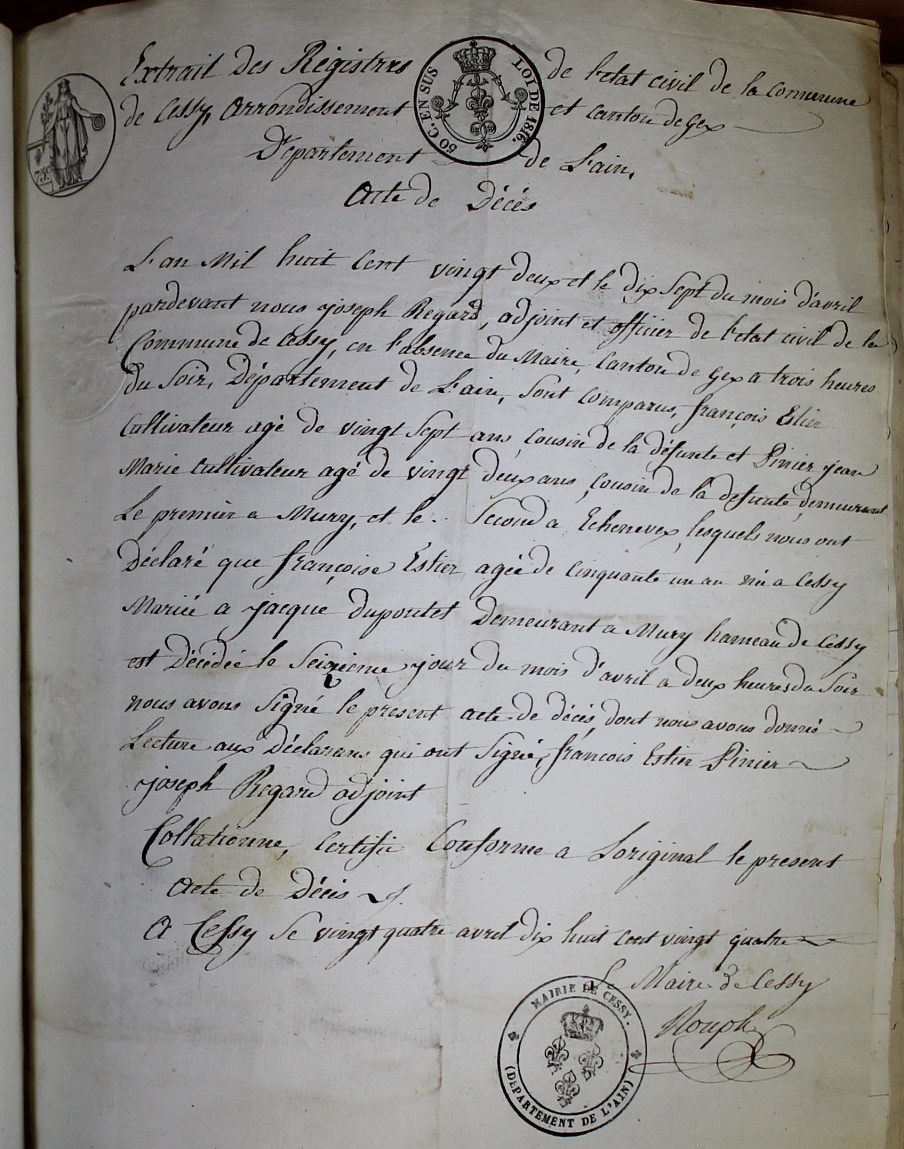 Extrait des Régistres de l'etat civil de la Commune
de Cessy, arrondissement et canton de Gex
Département de L'ain,
Acte de Décés
50 C. EN SUS
LOI DE 1816.
L'an Mil huit Cent vingt deux et le dix Sept du mois d'avril
pardevant nous joseph Regard, adjoint et officier de l'etat civil de la
Commune de Cessy, en l'absence du Maire, Canton de Gex a trois heures
du Soir, Département de L'ain, Sont comparus, françois Estier
Cultivateur agé de vingt Sept ans, cousin de la défunte et Pinier jean
Marie cultivateur agé de vingt deux ans, cousin de la defunte, demeurant
Le premier a Mury, et le Second a Echenevex, lesquels nous ont
Déclaré que françoise Estier agée de Cinquante un an né a Cessy
Mariée a jacque dupontet Demeurant a Mury hameau de Cessy
est Décédée le Seizieme jour du mois d'avril a deux heures du Soir
nous avons Signé le present acte de décés, dont nous avons donné
Lecture aux Déclarans qui ont Signé, françois Estier Pinier
joseph Regard adjoint
Collationne, Certifié Conforme a Loriginal le present
acte de Décés
A Cessy Le vingt quatre avril dix huit cent vingt quatre
Le Maire de Cessy
Rouph
MAIRIE DE CESSY.
(DEPARTEMENT DE L'AIN)